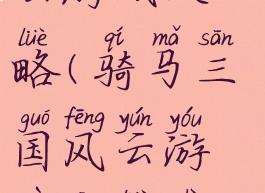 lüè qí mǎ sān
略(骑马三
guó fēng yún yóu
国风云游